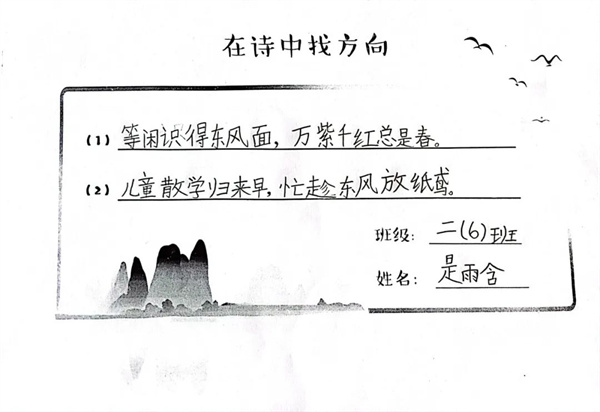 在诗中找方向
(1) 等闲识得东风面，万紫千红总是春。
(2) 儿童散学归来早，忙趁东风放纸鸢。
班级：二(6)班
姓名：是雨含